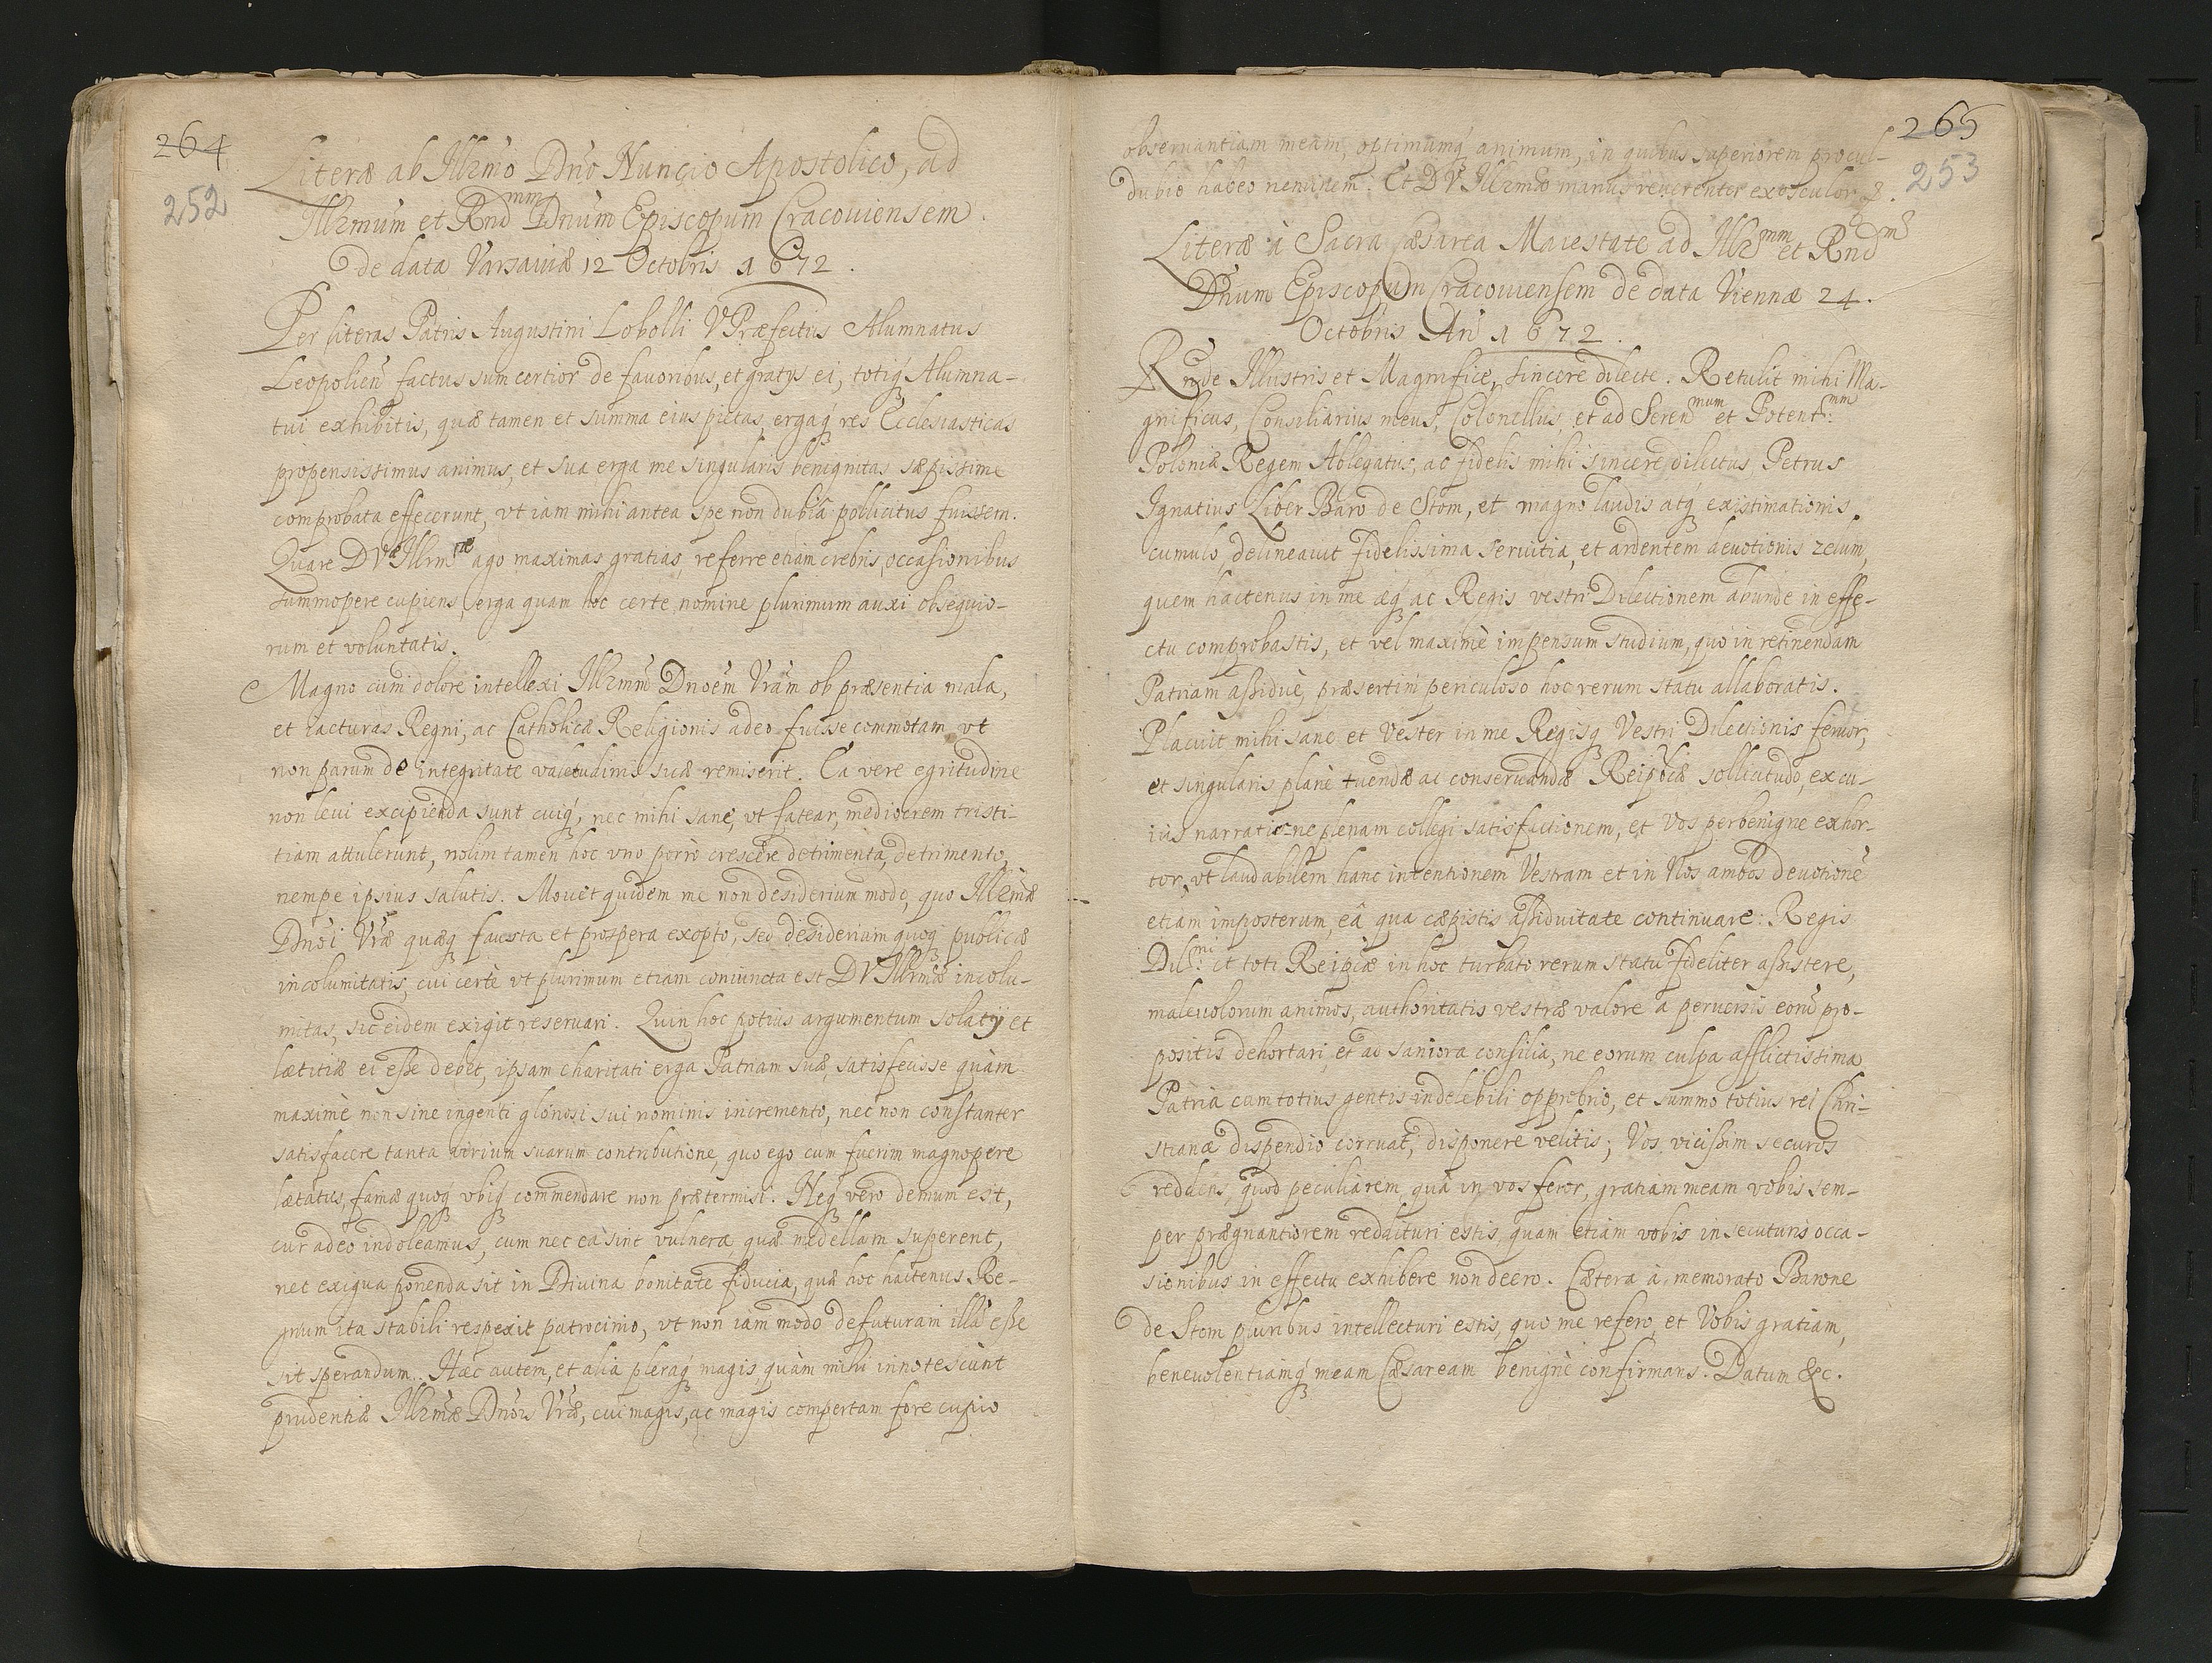 264
252
Literæ ab Illrmo Dno Nuncio Apostolico, ad
Illrmum et Rndmm Dnum Episcopum Cracouiensem.
De data Varsauiæ 12 Octobris 1672.
Per literas Patris Augustini Lobolli V Præfectus Alumnatus
Leopolien factus sum certior de fauoribus, et gratys ei, totiq Alumna-
tui exhibitis, quæ tamen et summa eius pietas, ergaq res Ecclesiasticas
propensissimus animus, et sua erga me singularis benignitas sæpissime
comprobata effecerunt, vt iam mihi antea spe non dubiâ pollicitus fuissem.
Quare D Væ Illrmæ ago maximas gratias, referre etiam crebris occasionibus
summopere cupiens, erga quam hoc certe nomine plurimum auxi obsequio-
rum et voluntatis.
Magno cum dolore intellexi Illrmm Dnoem Vram ob præsentia mala,
et iacturas Regni, ac Catholicæ Religionis adeo fuisse commotam vt
non parum de integritate valetudinis suæ remiserit. Ea vere egritudine
non leui excipienda sunt cuiq, nec mihi sane, vt fatear, mediocrem tristi-
tiam attulerunt, nolim tamen hoc vno porro crescere detrimenta, detrimento
nempe ipsius salutis. Mouet quidem me non desiderium modo, quo Illrmæ
Dnoi Vræ quæq fausta et prospera exopto, sed desiderium quoq publicæ
incolumitatis, cui certè vt plurimum etiam coniuncta est D V Illrmæ incolu-
mitas, sic eidem exigit reseruari. Quin hoc potius argumentum solatÿ et
lætitiæ ei esse debet, ipsam charitati erga Patriam suæ, satisfecisse quàm
maximè non sine ingenti gloriosi sui nominis incremento, nec non constanter
satisfacere tanta virium suarum contributione, quo ego cum fuerim magnopere
lætatus, famæ quoq vbiq commendare non prætermisi. Neq vero demum est,
cur adeo indoleamus, cum nec ea sint vulnera, quæ medellam superent,
nec exigua ponenda sit in Diuina bonitate fiducia, quæ hoc hactenus Re-
gnum ita stabili respexit patrocinio, vt non iam modo defuturam illa esse
sit sperandum. Hæc autem, et alia pleraq magis, quàm mihi innotescunt
prudentiæ Illrmæ Dnois Vræ, cui magis, ac magis compertam fore cupio
265
253
obseruantiam meam, optimumq animum, in quibus superiorem procul-
dubio habeo neminem. Et D V Illrmæ manus reuerenter exosculor &.
Literæ à Sacra Cæsarea Maiestate ad Illrmm et Rndm
Dnum Episcopum Cracouiensem de data Viennæ 24.
Octobris An 1672.
Rnde Illustris et Magnifice, sincere dilecte. Retulit mihi Ma-
gnificus, Consiliarius meus, Colonellus, et ad Serenmum et Potentmm
Poloniæ Regem Ablegatus, ac fidelis mihi sincere dilectus, Petrus
Ignatius Liber Baro de Stom, et magno laudis atq existimationis
cumulo, delineauit fidelissima seruitia, et ardentem deuotionis zelum,
quem hactenus in me æq ac Regis vestri Dilectionem abunde in effe-
ctu comprobastis, et vel maximè impensum studium, quo in retinendam
Patriam assiduè, præsertim periculoso hoc rerum statu allaboratis.
Placuit mihi sane et Vester in me Regisq Vestri Dilectionis feruor,
et singularis planè tuendæ ac conseruandæ Reipcæ sollicitudo, ex cu-
ius narratione plenam collegi satisfactionem, et Vos perbenigne exhor-
tor, vt laudabilem hanc intentionem Vestram et in Nos ambos deuotione
etiam imposterum, eâ qua cæpistis assiduitate continuare: Regis
Dilni et toti Reipcæ in hoc turbato rerum statu fideliter assistere,
maleuolorum animos, authoritatis vestræ valore a peruersis eorum pro-
positis dehortari, et ad saniora consilia, ne eorum culpa afflictissima
Patria cum totius gentis indelebili opprobrio, et summo totius rei Chri-
stianæ dispendio corruat, disponere velitis; Vos vicissim securos
reddens, quod peculiarem, quâ in vos feror, gratiam meam vobis sem-
per prægnantiorem reddituri estis, quam etiam vobis in secuturis occa-
sionibus in effectu exhibere non deero. Cætera à memorato Barone
de Stom pluribus intellecturi estis, quo me refero, et Vobis gratiam,
beneuolentiamq meam Cæsaream benignè confirmans. Datum &c.